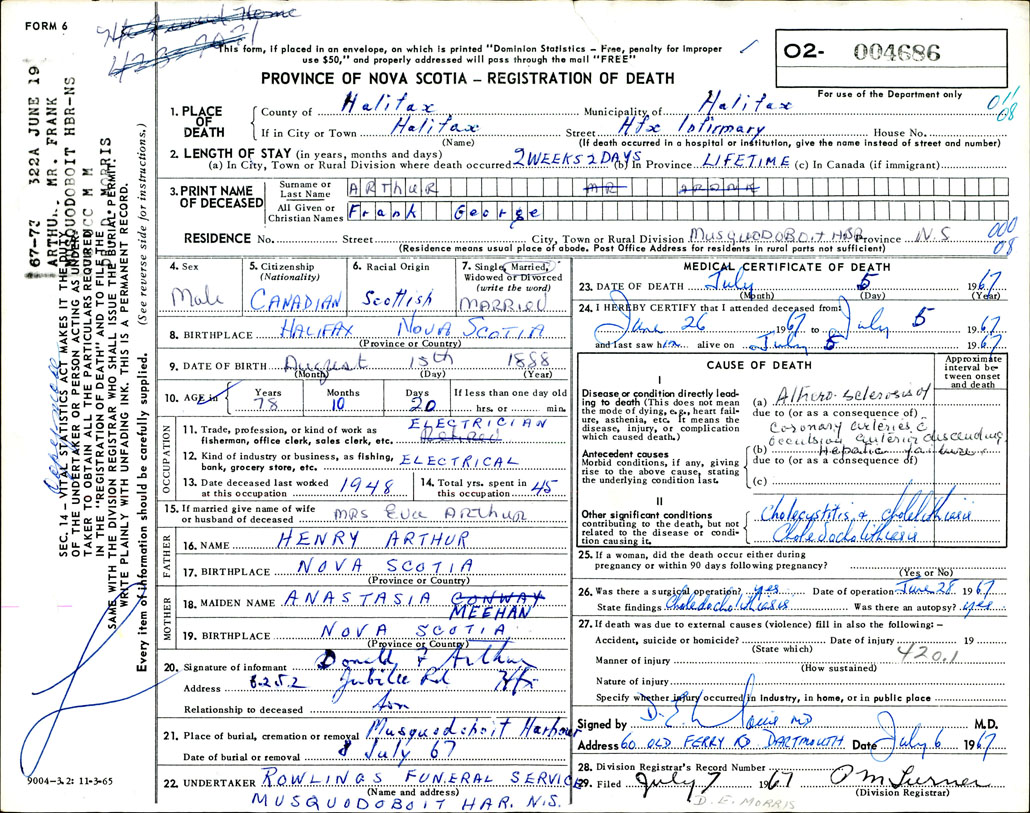 FORM 6
This form, if placed in an envelope, on which is printed "Dominion Statistics – Free, penalty for improper
use $50," and properly addressed will pass through the mail "FREE"
O2- 004686
For use of the Department only
PROVINCE OF NOVA SCOTIA – REGISTRATION OF DEATH
67-73 322A JUNE 19
ARTHUR. MR. FRANK
MUSQUODOBOIT HBR-NS
CC M M
D MORRIS
SEC. 14 – VITAL STATISTICS ACT MAKES IT THE DUTY
OF THE UNDERTAKER OR PERSON ACTING AS UNDER-
TAKER TO OBTAIN ALL THE PARTICULARS REQUIRED
IN THE "REGISTRATION OF DEATH" AND TO FILE THE
SAME WITH THE DIVISION REGISTRAR WHO SHALL ISSUE THE BURIAL PERMIT.
WRITE PLAINLY WITH UNFADING INK. THIS IS A PERMANENT RECORD.
Every item of information should be carefully supplied. (See reverse side for instructions.)
1. PLACE OF DEATH
County of Halifax Municipality of Halifax
011
08
If in City or Town Halifax Street Hfx Infirmary House No.
(Name) (If death occurred in a hospital or institution, give the name instead of street and number)
2. LENGTH OF STAY (in years, months and days)
(a) In City, Town or Rural Division where death occurred 2 WEEKS 2 DAYS (b) In Province LIFETIME (c) In Canada (if immigrant)
3. PRINT NAME OF DECEASED
Surname or Last Name ARTHUR MR FRANK
All Given or Christian Names Frank George
RESIDENCE No. Street City, Town or Rural Division MUSQUODOBOIT HBR Province N.S.
000
08
(Residence means usual place of abode. Post Office Address for residents in rural parts not sufficient)
4. Sex Male
5. Citizenship (Nationality) CANADIAN
6. Racial Origin Scottish
7. Single, Married, Widowed or Divorced (write the word) MARRIED
8. BIRTHPLACE HALIFAX NOVA SCOTIA
(Province or Country)
9. DATE OF BIRTH August 15th 1888
(Month) (Day) (Year)
10. AGE in Years 78 Months 10 Days 20 If less than one day old hrs. or min.
OCCUPATION
11. Trade, profession, or kind of work as fisherman, office clerk, sales clerk, etc. ELECTRICIAN
Retired
12. Kind of industry or business, as fishing, bank, grocery store, etc. ELECTRICAL
13. Date deceased last worked at this occupation 1948
14. Total yrs. spent in this occupation 45
15. If married give name of wife or husband of deceased MRS Eva ARTHUR
FATHER
16. NAME HENRY ARTHUR
17. BIRTHPLACE NOVA SCOTIA
(Province or Country)
MOTHER
18. MAIDEN NAME ANASTASIA CONWAY
MEEHAN
19. BIRTHPLACE NOVA SCOTIA
(Province or Country)
20. Signature of informant Donald F Arthur
Address 6252 Jubilee Rd Hfx
Relationship to deceased son
21. Place of burial, cremation or removal Musquodoboit Harbour
Date of burial or removal 8 July 67
22. UNDERTAKER ROWLINGS FUNERAL SERVICE
(Name and address)
MUSQUODOBOIT HAR. N.S.
9004-3.2: 11-3-65
MEDICAL CERTIFICATE OF DEATH
23. DATE OF DEATH July 5 1967
(Month) (Day) (Year)
24. I HEREBY CERTIFY that I attended deceased from:
June 26 1967 to July 5 1967
and last saw him alive on July 5 1967
CAUSE OF DEATH
Approximate interval between onset and death
I
Disease or condition directly leading to death (This does not mean the mode of dying, e.g., heart failure, asthenia, etc. It means the disease, injury, or complication which caused death.)
(a) Athero-sclerosis of
due to (or as a consequence of)
coronary arteries c
occulsion anterior descending
Antecedent causes
Morbid conditions, if any, giving rise to the above cause, stating the underlying condition last.
(b) Hepatic failure
due to (or as a consequence of)
(c)
II
Other significant conditions contributing to the death, but not related to the disease or condition causing it.
Cholecystitis & cholelithiasis
Choledocholithiasis
25. If a woman, did the death occur either during pregnancy or within 90 days following pregnancy?
(Yes or No)
26. Was there a surgical operation? yes Date of operation June 28 1967
State findings Choledocholithiasis Was there an autopsy? yes
27. If death was due to external causes (violence) fill in also the following: –
Accident, suicide or homicide? Date of injury 19
(State which)
420.1
Manner of injury
(How sustained)
Nature of injury
Specify whether injury occurred in industry, in home, or in public place
Signed by M.D.
Address 60 OLD FERRY RD DARTMOUTH Date July 6 1967
28. Division Registrar's Record Number
29. Filed July 7 1967 P M Turner
(Division Registrar)
D. E. MORRIS